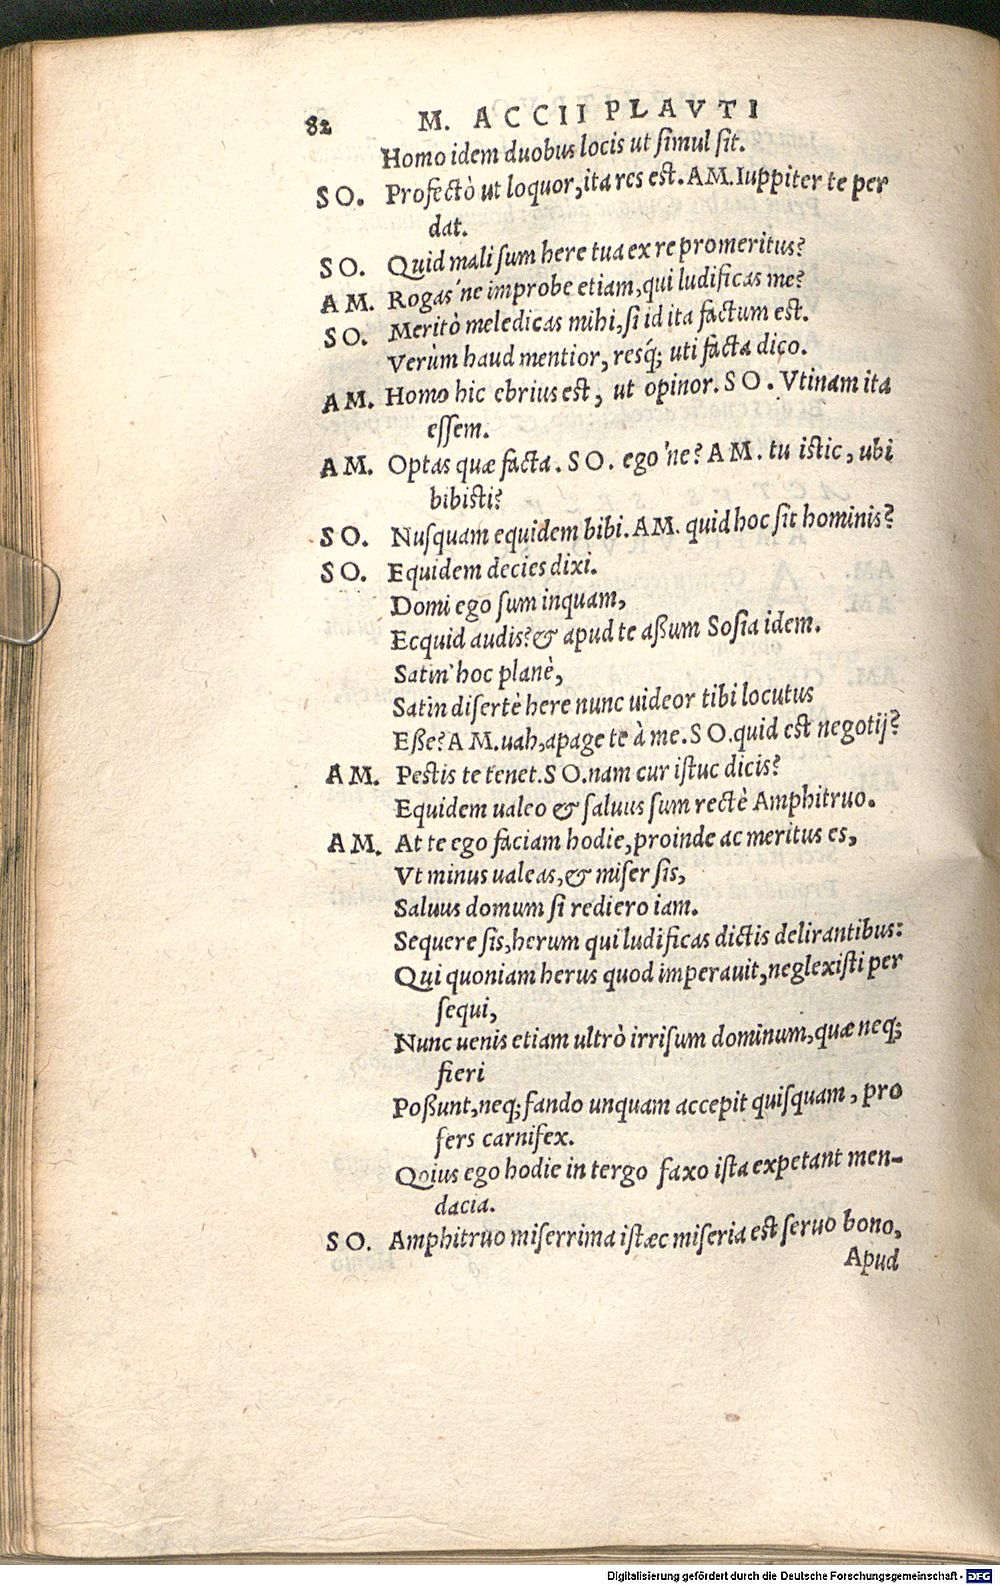 82 M. ACCII PLAVTI
Homo idem duobus locis ut ſimul ſit.
SO. Profectò ut loquor, ita res eſt. AM. Iuppiter te per
dat.
SO. Quid mali ſum here tua ex re promeritus?
AM. Rogas'ne improbe etiam, qui ludificas me?
SO. Meritò meledicas mihi, ſi id ita factum eſt.
Verùm haud mentior, resq́; uti facta dico.
AM. Homo hic ebrius eſt, ut opinor. SO. Vtinam ita
eſſem.
AM. Optas quæ facta. SO. ego'ne? AM. tu iſtic, ubi
bibiſti?
SO. Nuſquam equidem bibi. AM. quid hoc ſit hominis?
SO. Equidem decies dixi.
Domi ego ſum inquam,
Ecquid audis? & apud te aßum Soſia idem.
Satin' hoc planè,
Satin diſertè here nunc uideor tibi locutus
Eße? AM. uah, apage te à me. SO. quid eſt negotij?
AM. Peſtis te tenet. SO. nam cur iſtuc dicis?
Equidem ualeo & ſaluus ſum rectè Amphitruo.
AM. At te ego faciam hodie, proinde ac meritus es,
Vt minus ualeas, & miſer ſis,
Saluus domum ſi rediero iam.
Sequere ſis, herum qui ludificas dictis delirantibus:
Qui quoniam herus quod imperauit, neglexiſti per
ſequi,
Nunc uenis etiam ultrò irriſum dominum, quæ neq;
fieri
Poßunt, neq; fando unquam accepit quiſquam, pro
fers carnifex.
Quius ego hodie in tergo faxo iſta expetant men-
dacia.
SO. Amphitruo miſerrima iſtæc miſeria eſt ſeruo bono,
Apud
Digitalisierung gefördert durch die Deutsche Forschungsgemeinschaft - DFG